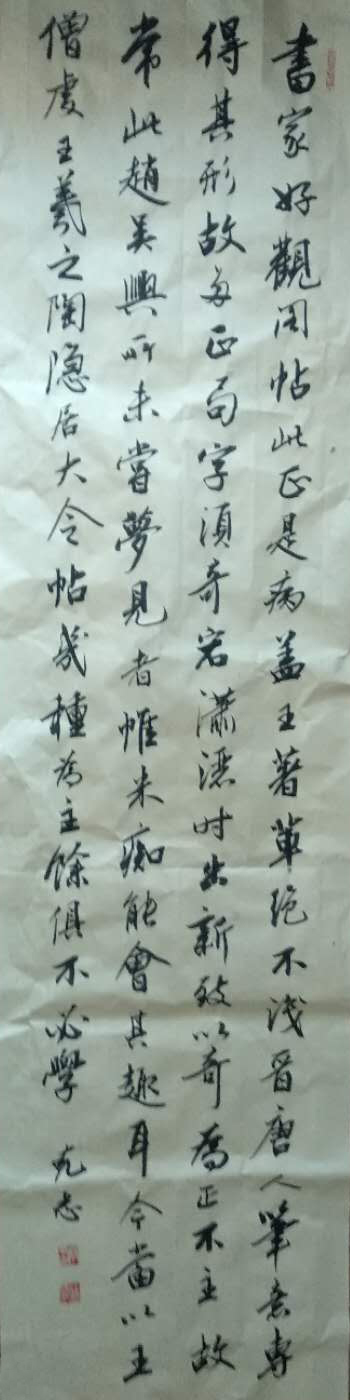 書家好觀阁帖此正是病蓋王著軰绝不浅晋唐人筆意專
得其形故多正局字須奇宕瀟洒时出新致以奇為正不主故
常此趙吴興所未嘗夢見者惟米痴能會其趣耳今當以王
僧虔王羲之陶隐居大令帖幾種為主餘俱不必學